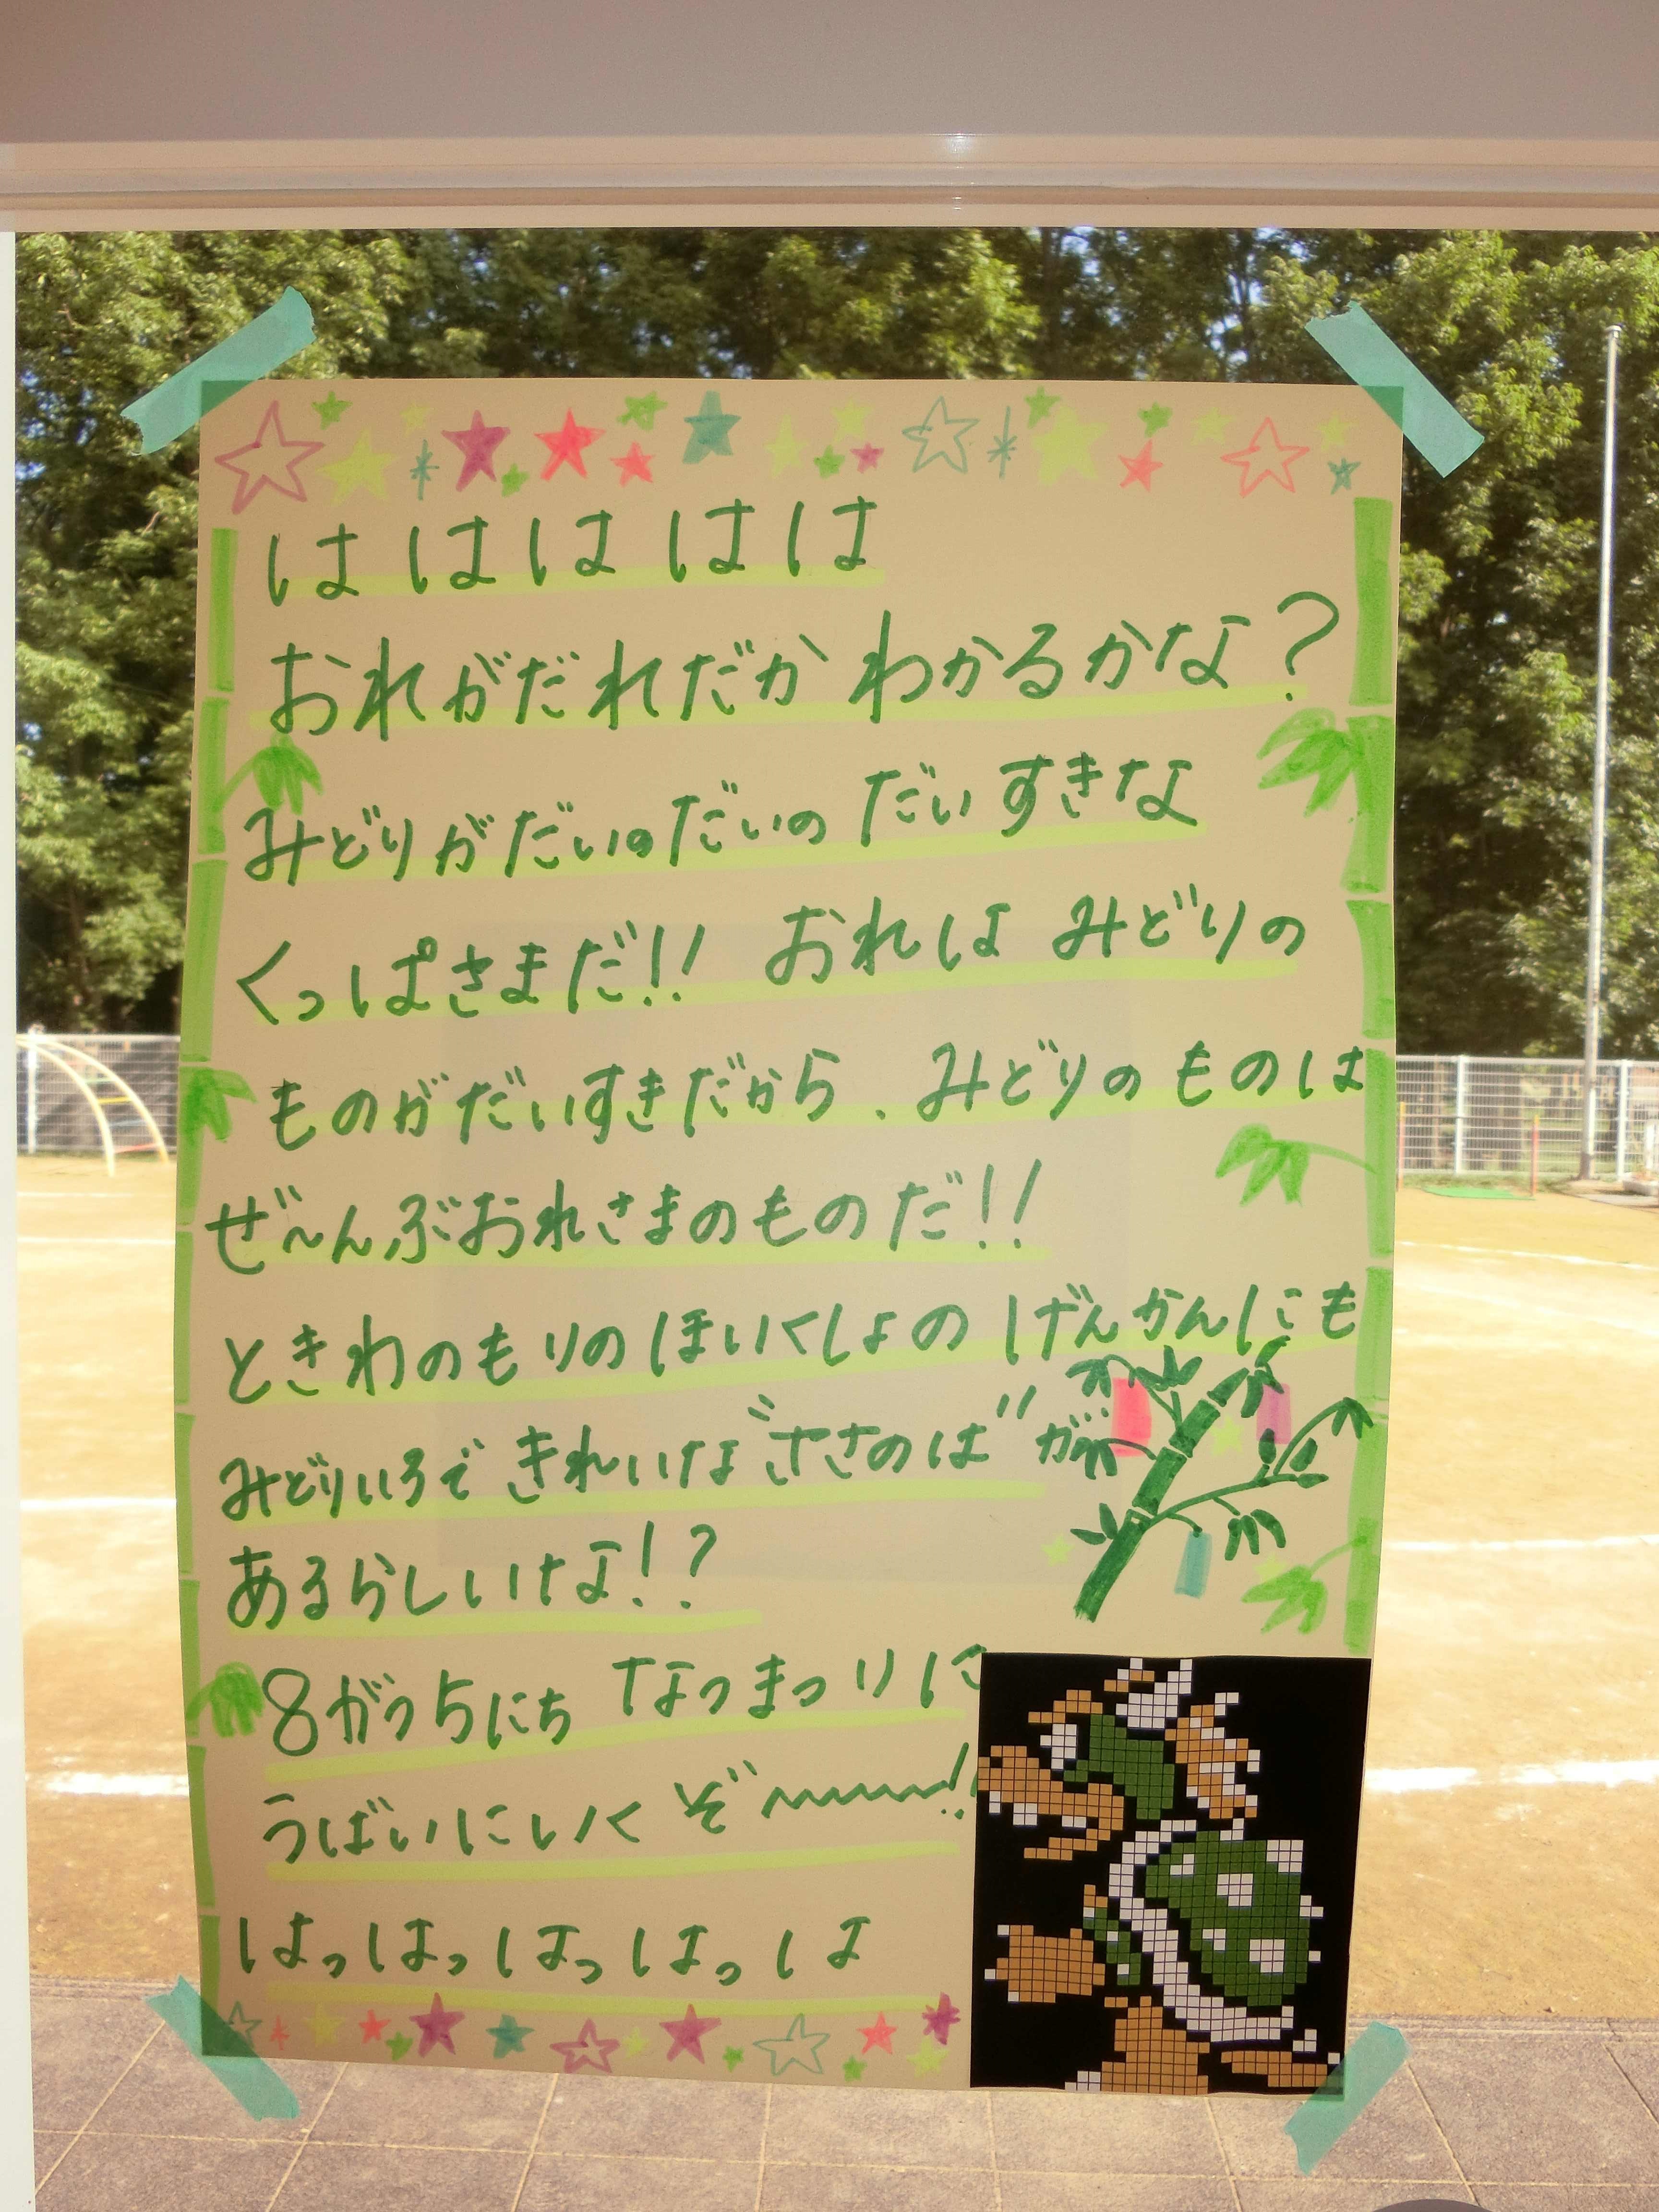 は は は は は
おれがだれだか わかるかな？
みどりがだいのだいの だいすきな
くっぱさまだ!! おれは みどりの
ものがだいすきだから、みどりのものは
ぜ〜んぶおれさまのものだ!!
ときわのもりのほいくしょの げんかんにも
みどりいろで きれいな"ささのは"が
あるらしいけな!?
8がつ5にち なつまつりに
うばいにいく ぞ〜〜〜!!
はっはっはっはっは